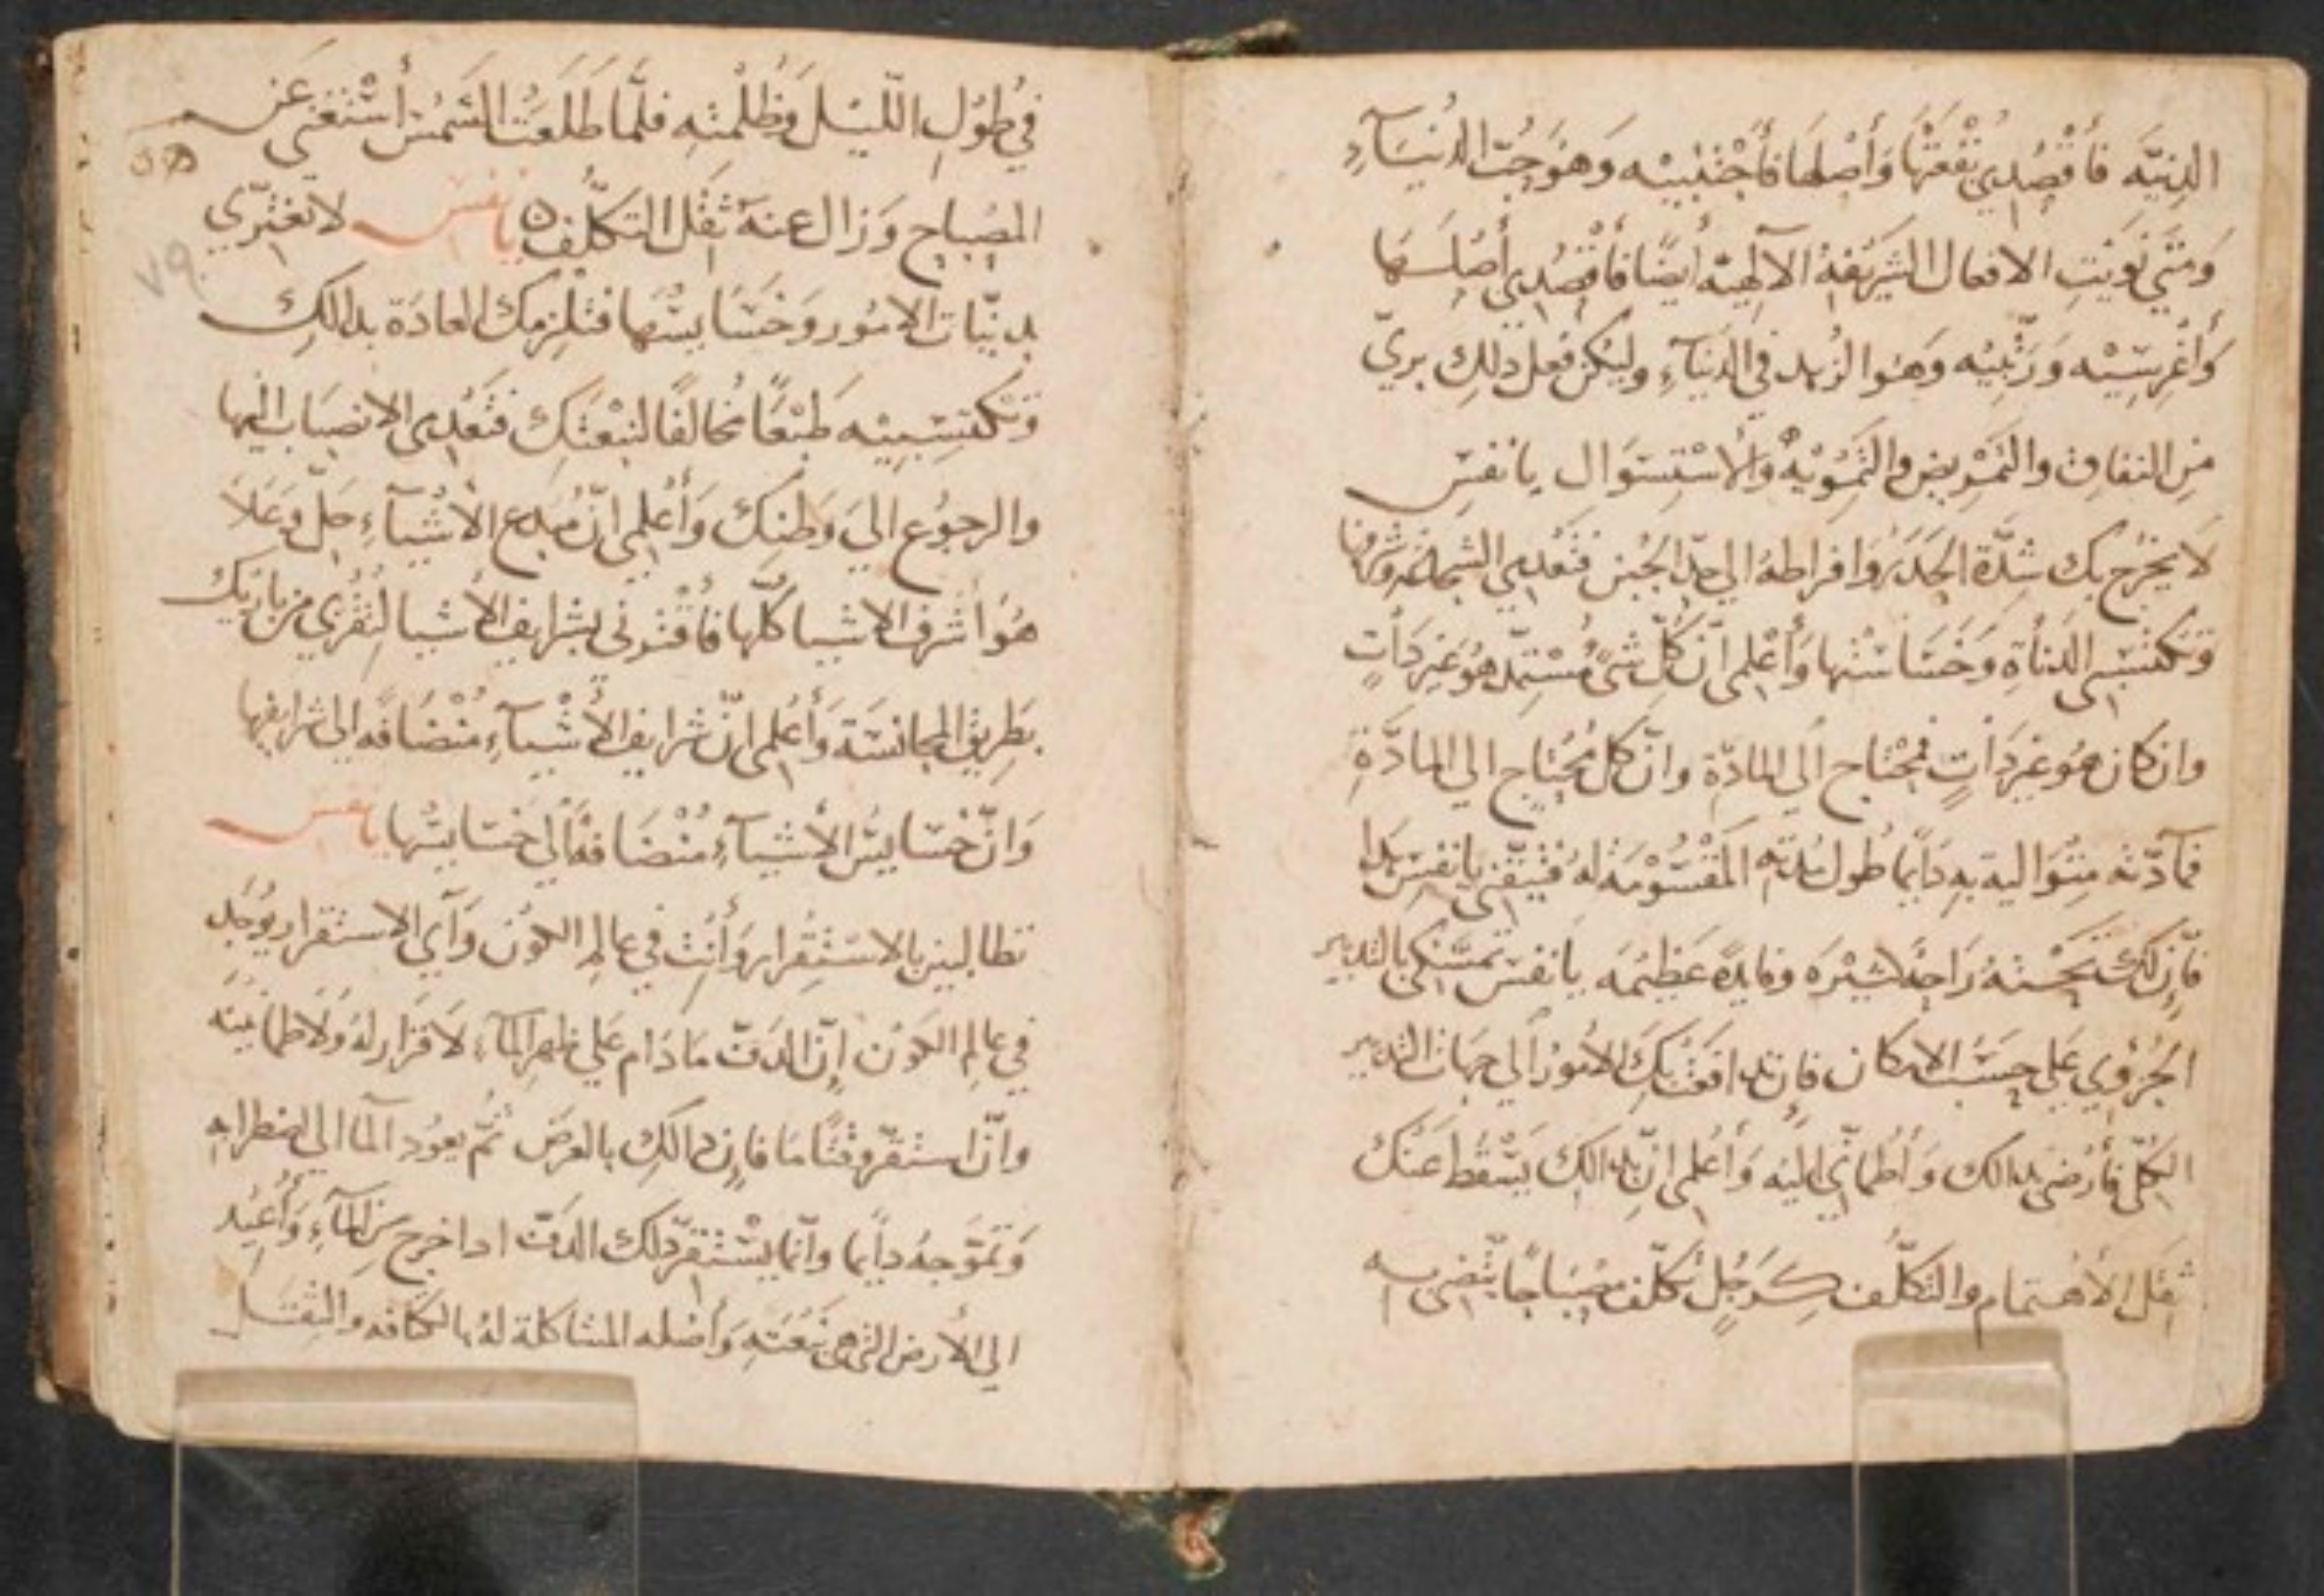 الدنيّه فاقصدي نقعتها وأصلها فأجتنبيه وهو حبّ الدنيآءِ
ومتي نويتِ الافعال الشريفة الآلهيه ايضًا فأقصدي أصلها
وأغرسيه وربّيه وهو الزهد في الدنيآءِ وليكن فعل ذلك بريّ
من النفاق والتمريض والتمويه والاستسوال يا نفس
لا يخرج بك شدّة الحذر وافراطه الي حدّ الجبن فتعدمي الشجاعه وشرفها
وتكتسبي الدنأة وخساستها وأعلمي انّ كلّ شيً مستمدّ هو غير دأتٍ
وان كان هو غير دأتٍ فمحتاج الي المادّة وانّ كل محتاج الي المادّة
فمآدّته متواليه به دايمًا طول مدته المقسومه له فتيقّني يا نفس بدا
فإن لك تحسنه راحة كثيره وفايدة عظيمه يا نفس تمسّكي بالتدبير
الجزوي علي حسب الامكان فان دافعتك الامور الي جهات التدبير
الكلّي فأرضي بدالك وأطمأنّي اليه وأعلمي انّ بدالك يسقط عنك
ثقل الأهتمام والتكلّف كرجلٍ تكلّف مصباحًا يتّضي به
في طول اللّيل وظلمته فلمّا طلعت الشمس أستغني عن
المصباح وزال عنه ثقل التكلّف ۞ يا نفس لا تغترّي
بدنيّات الامور وخسايسها فتلزمك العادة بدالك
وتكتسبيه طبعًا مخالفًا لنبعتك فتعدمي الانصباب اليها
والرجوع الي وطنك وأعلمي انّ مبدع الأشيآءِ جلّ وعلا
هو أشرف الاشيا كلّها فأقتوني بشرايف الأشيا لتقربي من باريك
بطريق المجانسة وأعلمي انّ شرايف الأشيآءِ منضافه الي شرايفها
وانّ خسايس الأشيآءِ منضافة الي خسايسها يا نفس
تطالبين بالاستقرار وأنت في عالم الكون وآي الاستقرار يوجد
في عالم الكون إنّ الدفّ ما دام علي ظهر المآءِ لا قرار له ولا طمانينه
وانّ استقرّ وقتًا ما فإن دالك بالعرض ثمّ يعود المآ الي اضطرابه
وتموّجه دايما وانّما يستقرّ دلك الدفّ ادا خرج من المآءِ وأعيد
الي الأرض التي هي نبعته وأصله المشاكلة له بالكثافه والثقل
٥٨
٧٩